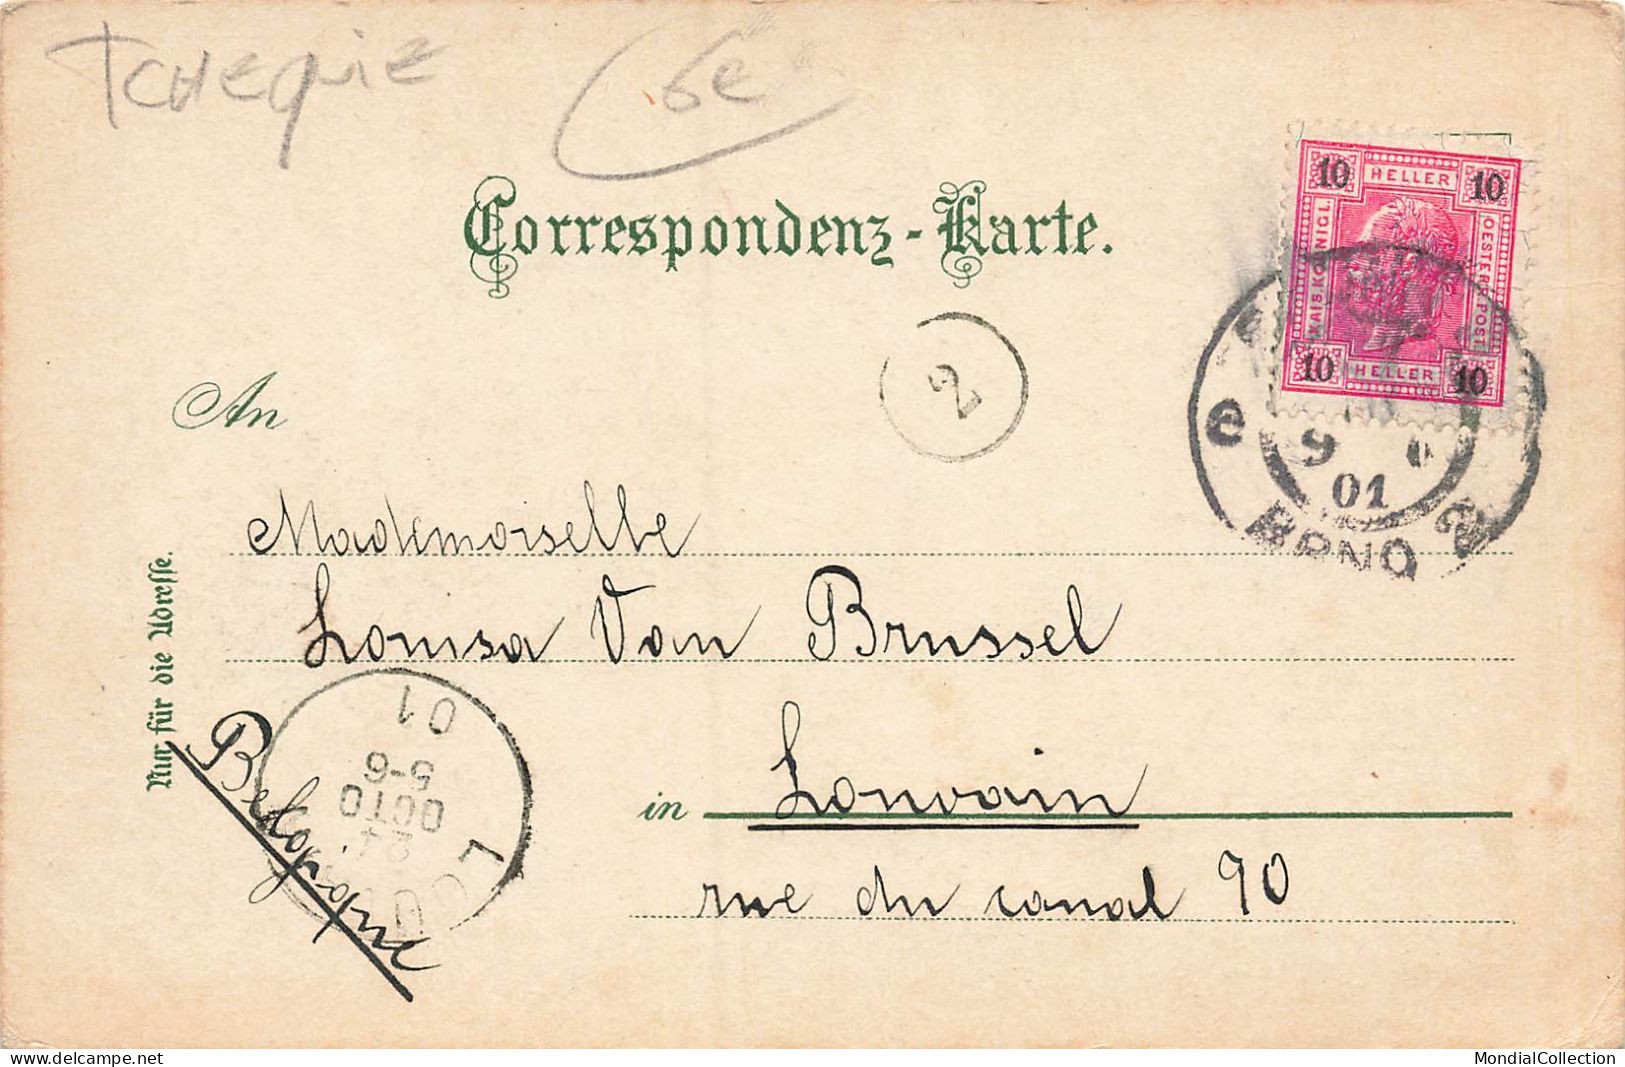 TCHEQUIE
6e
Correspondenz-Karte.
10 HELLER 10
KAIS. KÖNIGL.
OESTERR. POST
10 HELLER 10
2
e
9
01
BRNO
An
Mademoiselle
Louisa Van Brussel
Nur für die Adresse.
Belgique
01
5-6
OCTO
24
LOU
in Louvain
rue du canal 90
MondialCollection